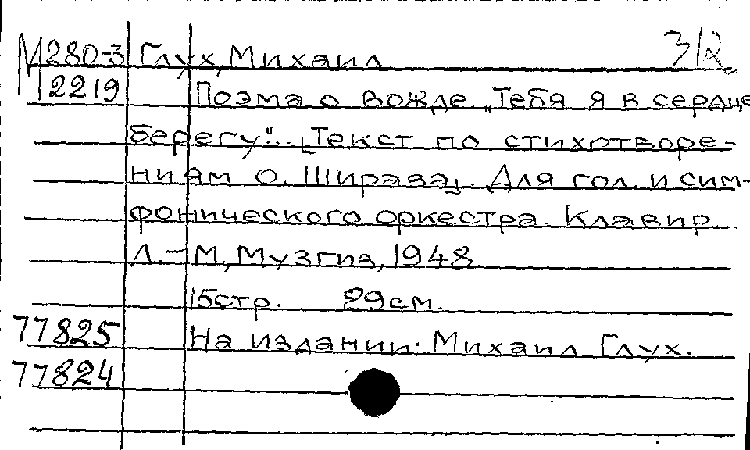 М280-3 Глух, Михаил 3/2
12219 Поэма о вожде „Тебя я в сердце
берегу"... [Текст по стихотворе-
ниям О. Шираза]. Для гол. и сим-
фонического оркестра. Клавир.
Л.-М, Музгиз, 1948
15стр. 29см.
77825 На издании: Михаил Глух.
77824